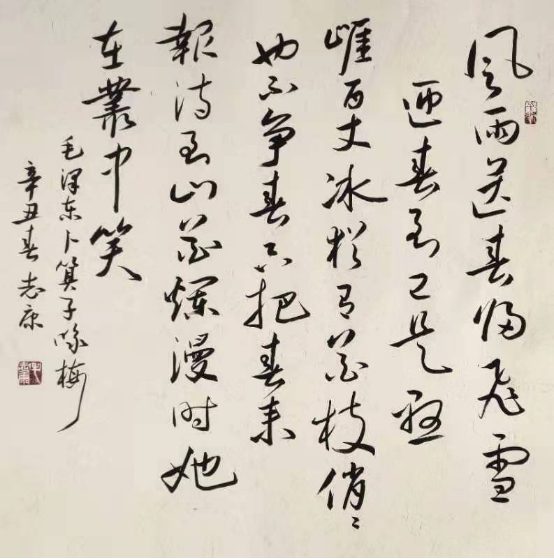 風雨送春归飞雪
迎春到已是悬
崕百丈冰犹有花枝俏〻
也不争春只把春来
報待到山花爛漫时她
在叢中笑
毛泽东卜算子咏梅
辛丑春 志康